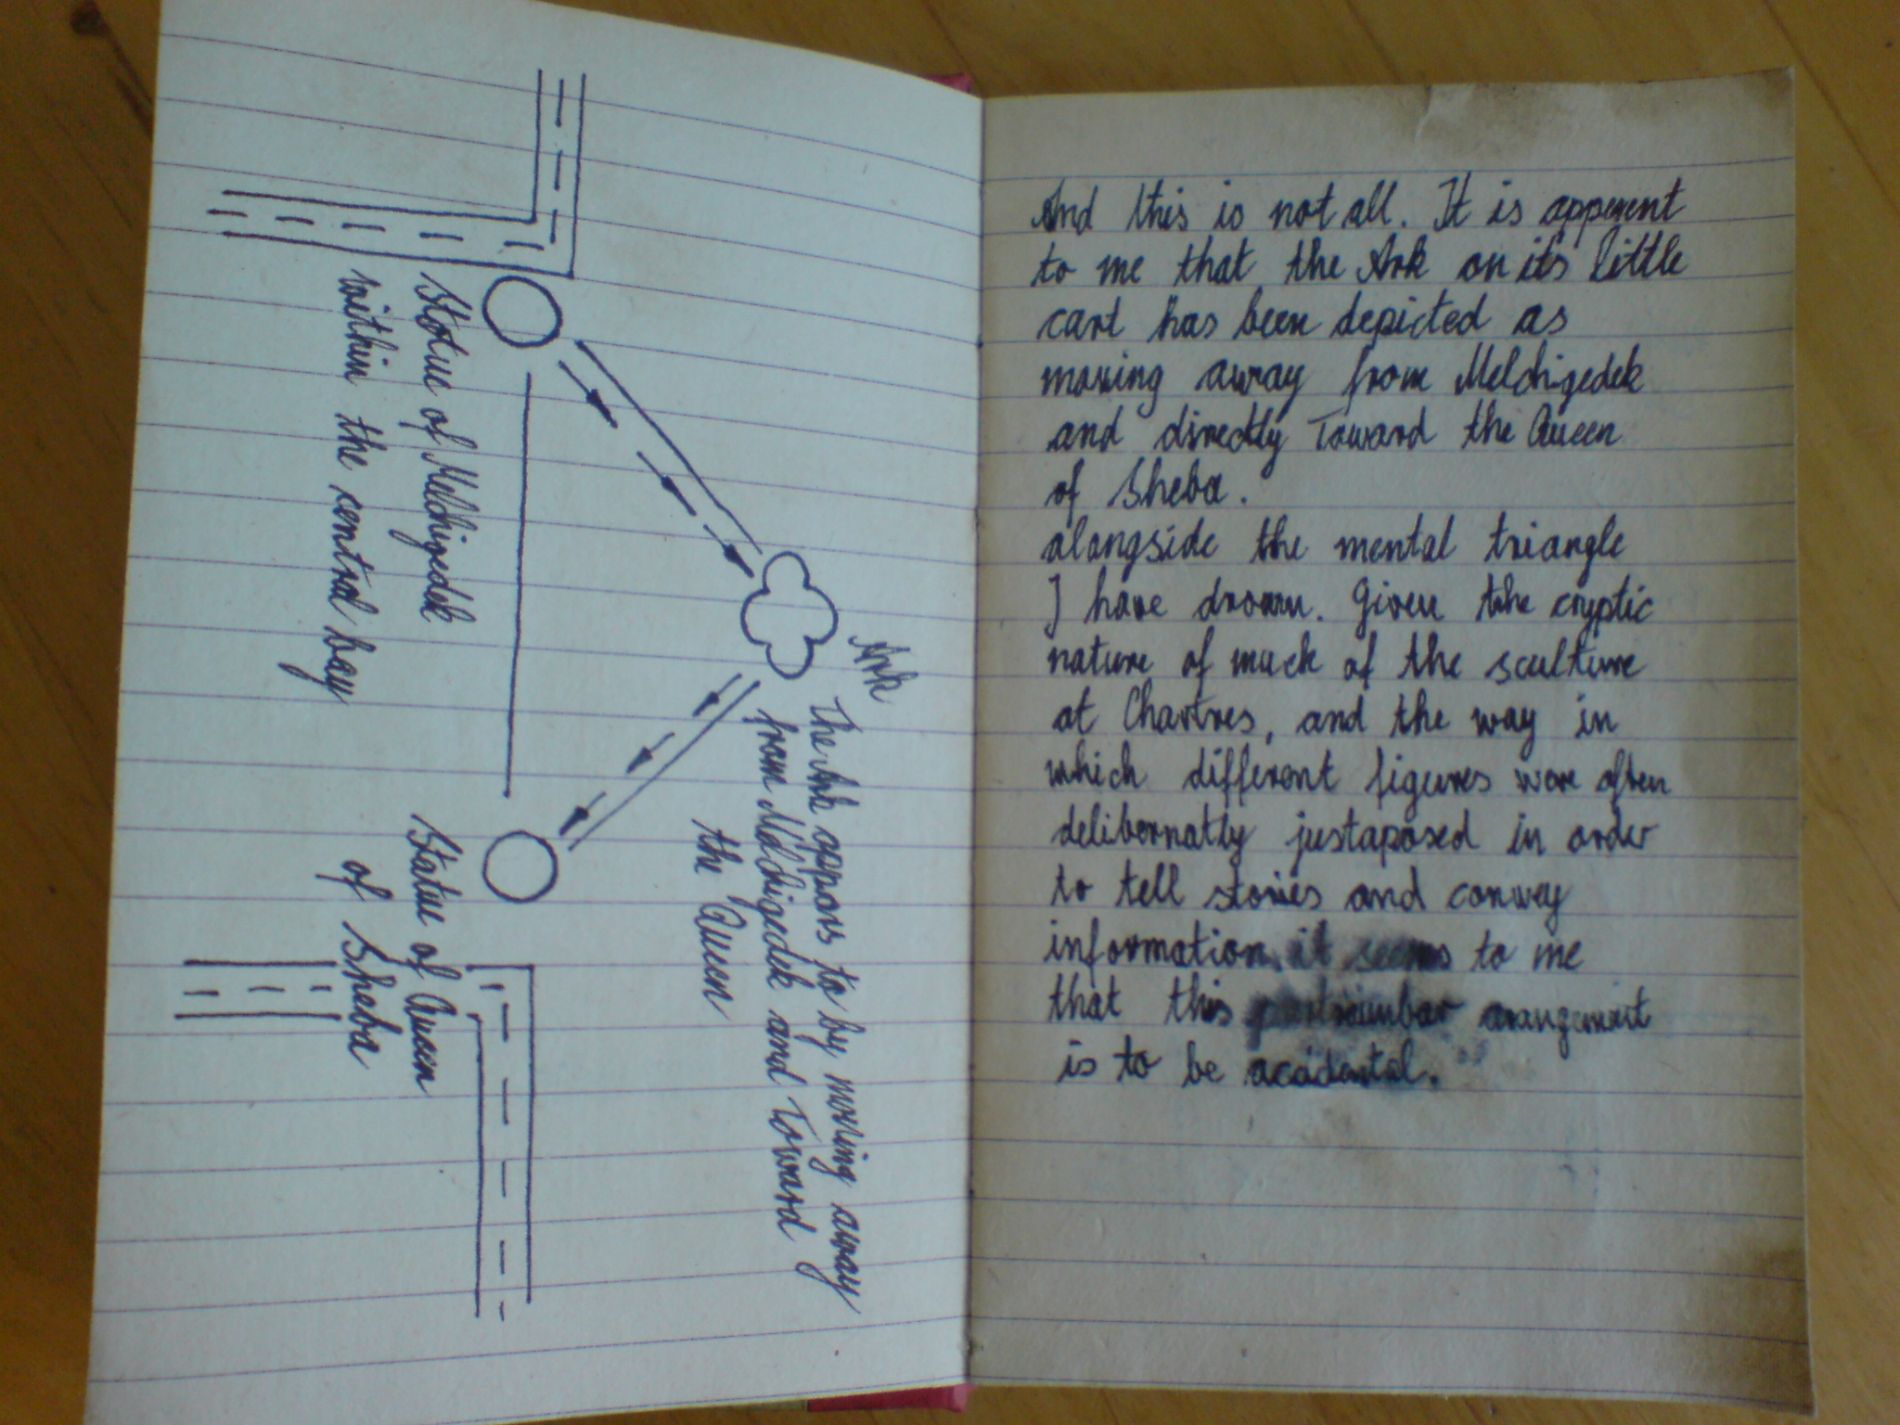 Statue of Melchigedek
within the central bay
Ark
The Ark appars to by moving away
from Melchigedek and Toward
the Queen
Statue of Queen
of Sheba
And this is not all. It is apperent
to me that the Ark on it's little
cart has been depicted as
moving away from Melchigedek
and directly Toward the Queen
of Sheba.
alongside the mental triangle
I have drown. Given the cryptic
nature of much of the sculture
at Chartres, and the way in
which different figures were often
delibernatly justaposed in order
to tell stories and conwey
information, it seems to me
that this arangement
is to be acidental.